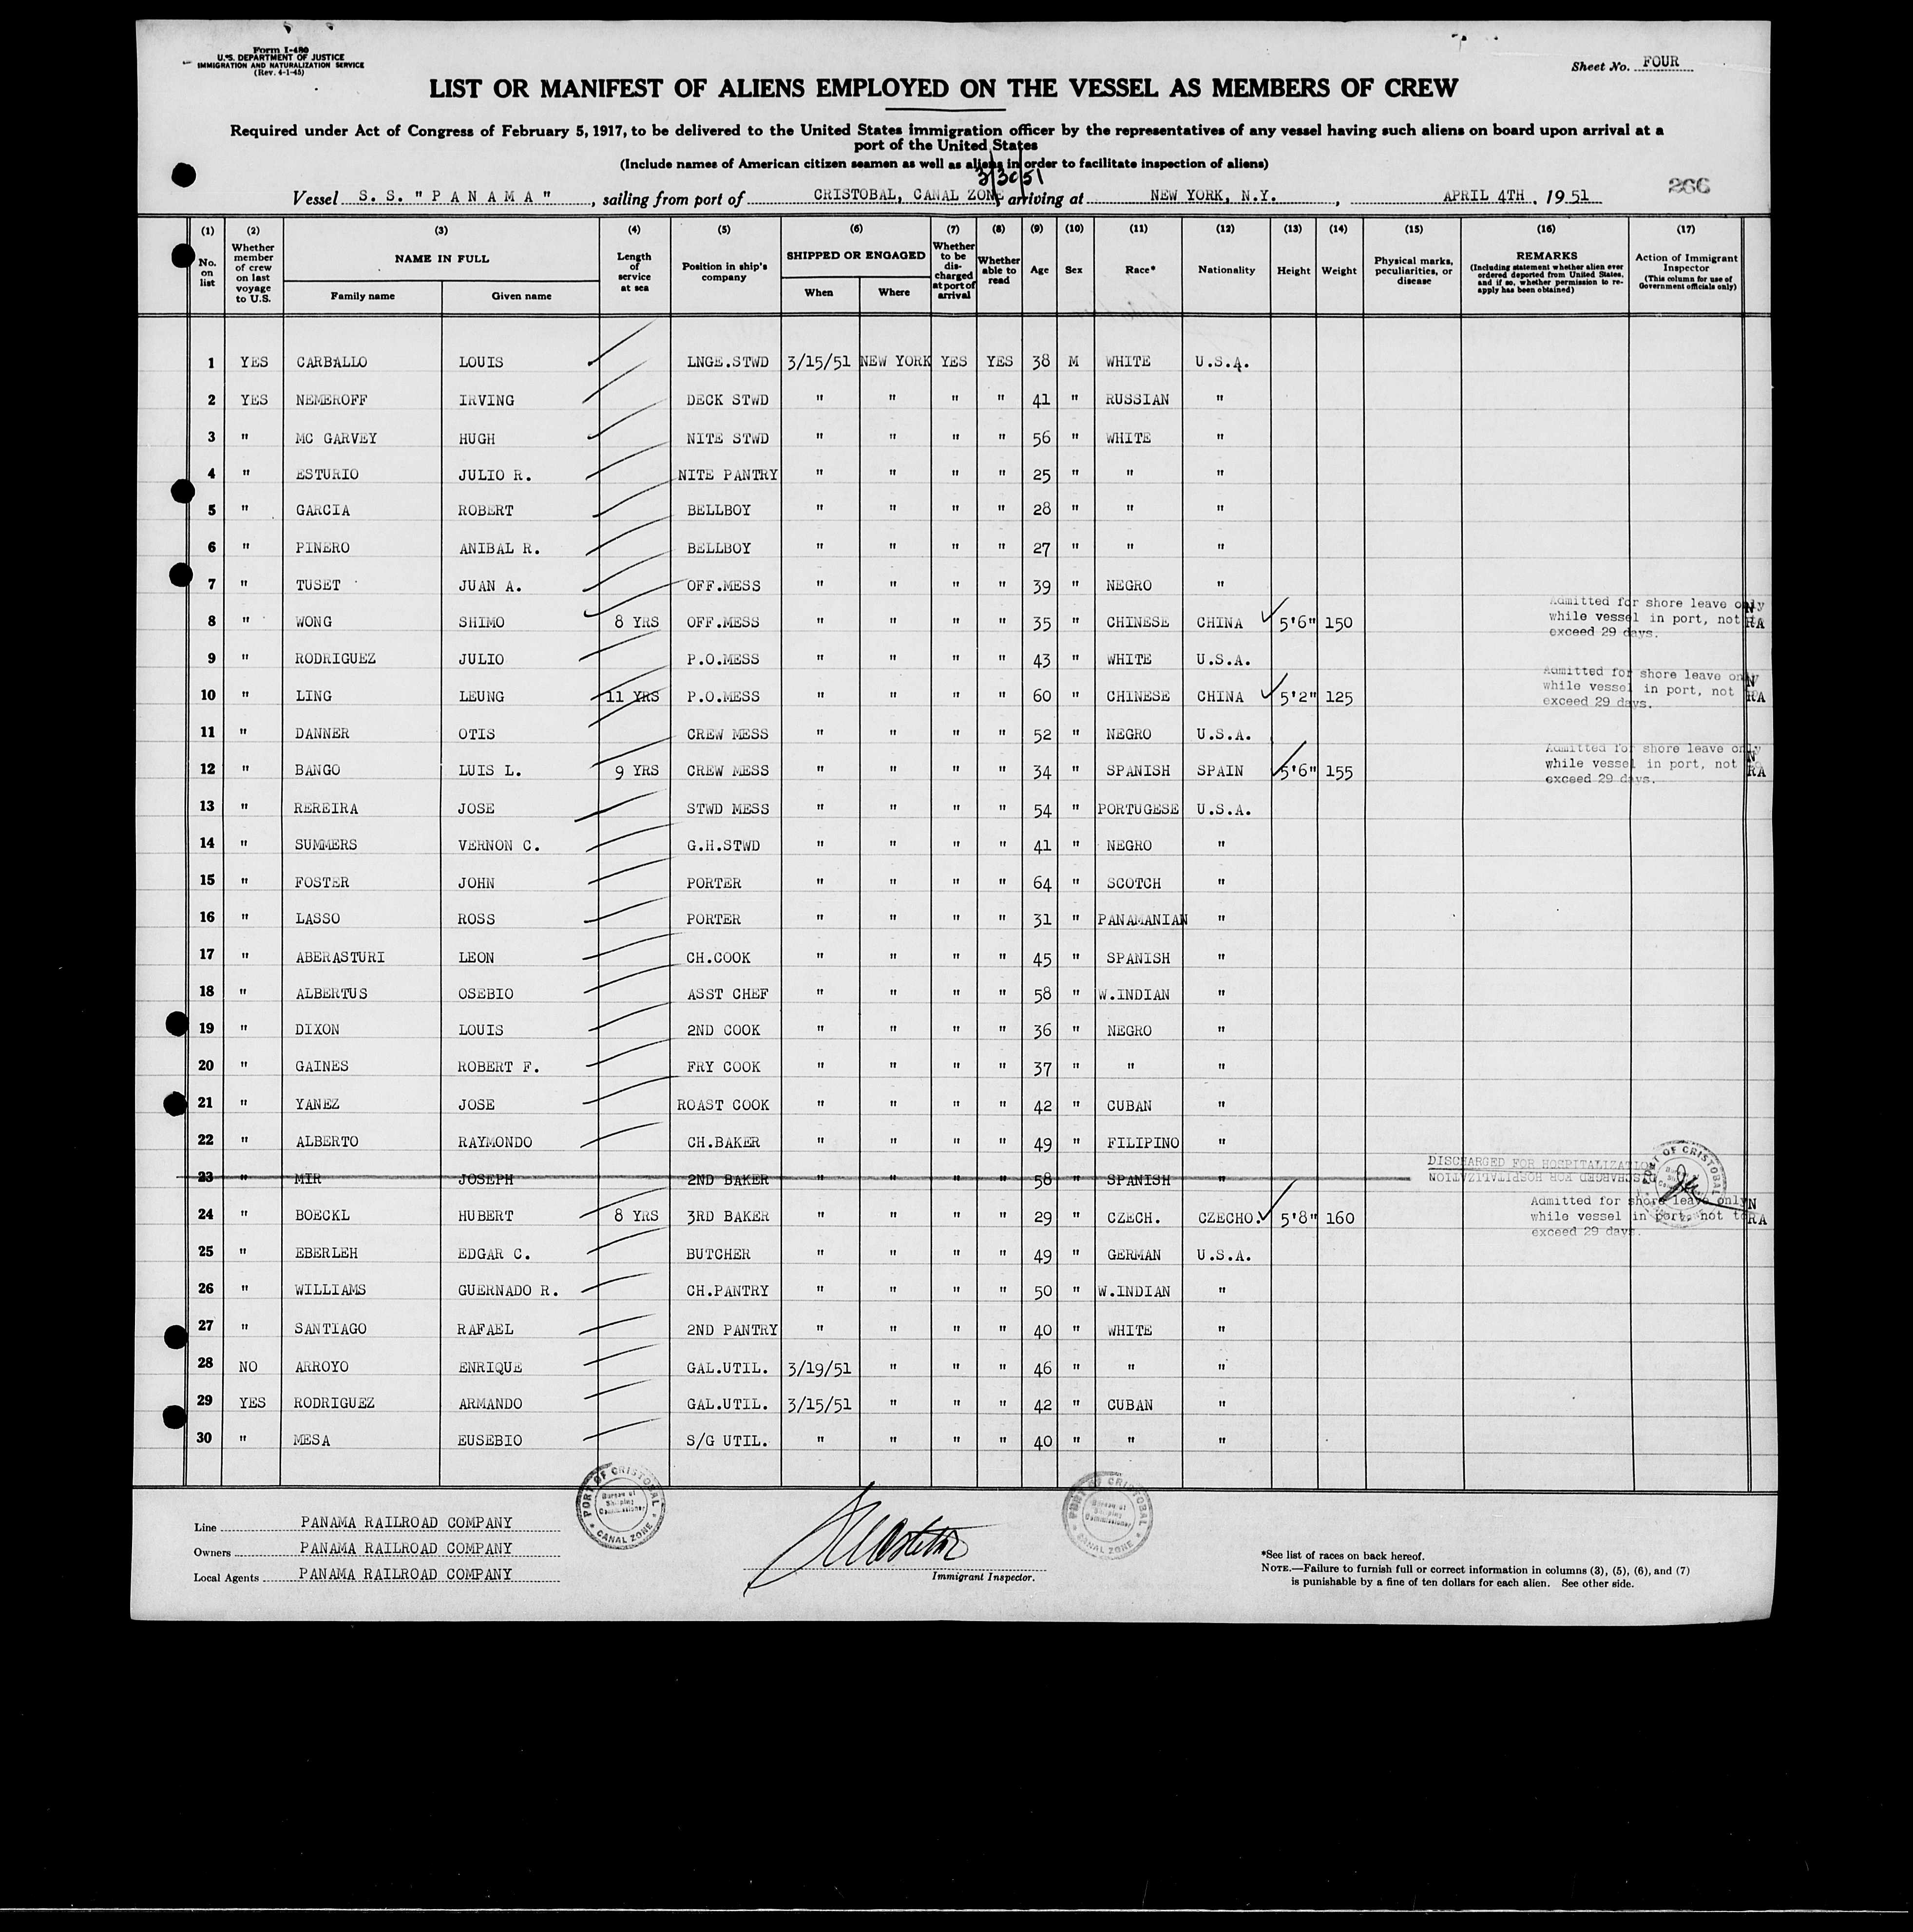 Form I-480
U. S. DEPARTMENT OF JUSTICE
IMMIGRATION AND NATURALIZATION SERVICE
(Rev. 4-1-45)
Sheet No. FOUR
LIST OR MANIFEST OF ALIENS EMPLOYED ON THE VESSEL AS MEMBERS OF CREW
Required under Act of Congress of February 5, 1917, to be delivered to the United States immigration officer by the representatives of any vessel having such aliens on board upon arrival at a
port of the United States
(Include names of American citizen seamen as well as aliens in order to facilitate inspection of aliens)
3/30/51
266
Vessel S. S. "PANAMA", sailing from port of CRISTOBAL, CANAL ZONE arriving at NEW YORK, N.Y., APRIL 4TH, 1951
(1) No. on list
(2) Whether member of crew on last voyage to U.S.
(3) NAME IN FULL
Family name Given name
(4) Length of service at sea
(5) Position in ship's company
(6) SHIPPED OR ENGAGED
When Where
(7) Whether to be discharged at port of arrival
(8) Whether able to read
(9) Age
(10) Sex
(11) Race*
(12) Nationality
(13) Height
(14) Weight
(15) Physical marks, peculiarities, or disease
(16) REMARKS (Including statement whether alien ever ordered deported from United States, and if so, whether permission to reapply has been obtained)
(17) Action of Immigrant Inspector (This column for use of Government officials only)
1 YES CARBALLO LOUIS LNGE.STWD 3/15/51 NEW YORK YES YES 38 M WHITE U.S.A.
2 YES NEMEROFF IRVING DECK STWD " " " " 41 " RUSSIAN "
3 " MC GARVEY HUGH NITE STWD " " " " 56 " WHITE "
4 " ESTURIO JULIO R. NITE PANTRY " " " " 25 " " "
5 " GARCIA ROBERT BELLBOY " " " " 28 " " "
6 " PINERO ANIBAL R. BELLBOY " " " " 27 " " "
7 " TUSET JUAN A. OFF.MESS " " " " 39 " NEGRO "
8 " WONG SHIMO 8 YRS OFF.MESS " " " " 35 " CHINESE CHINA 5'6" 150 Admitted for shore leave only while vessel in port, not to exceed 29 days. N RA
9 " RODRIGUEZ JULIO P.O.MESS " " " " 43 " WHITE U.S.A.
10 " LING LEUNG 11 YRS P.O.MESS " " " " 60 " CHINESE CHINA 5'2" 125 Admitted for shore leave only while vessel in port, not to exceed 29 days. N RA
11 " DANNER OTIS CREW MESS " " " " 52 " NEGRO U.S.A.
12 " BANGO LUIS L. 9 YRS CREW MESS " " " " 34 " SPANISH SPAIN 5'6" 155 Admitted for shore leave only while vessel in port, not to exceed 29 days. N RA
13 " REREIRA JOSE STWD MESS " " " " 54 " PORTUGESE U.S.A.
14 " SUMMERS VERNON C. G.H.STWD " " " " 41 " NEGRO "
15 " FOSTER JOHN PORTER " " " " 64 " SCOTCH "
16 " LASSO ROSS PORTER " " " " 31 " PANAMANIAN "
17 " ABERASTURI LEON CH.COOK " " " " 45 " SPANISH "
18 " ALBERTUS OSEBIO ASST CHEF " " " " 58 " W.INDIAN "
19 " DIXON LOUIS 2ND COOK " " " " 36 " NEGRO "
20 " GAINES ROBERT F. FRY COOK " " " " 37 " " "
21 " YANEZ JOSE ROAST COOK " " " " 42 " CUBAN "
22 " ALBERTO RAYMONDO CH.BAKER " " " " 49 " FILIPINO "
23 " MIR JOSEPH 2ND BAKER " " " " 58 " SPANISH " DISCHARGED FOR HOSPITALIZATION
PORT OF CRISTOBAL CANAL ZONE
24 " BOECKL HUBERT 8 YRS 3RD BAKER " " " " 29 " CZECH. CZECHO. 5'8" 160 Admitted for shore leave only while vessel in port, not to exceed 29 days. N RA
25 " EBERLEH EDGAR C. BUTCHER " " " " 49 " GERMAN U.S.A.
26 " WILLIAMS GUERNADO R. CH.PANTRY " " " " 50 " W.INDIAN "
27 " SANTIAGO RAFAEL 2ND PANTRY " " " " 40 " WHITE "
28 NO ARROYO ENRIQUE GAL.UTIL. 3/19/51 " " " 46 " " "
29 YES RODRIGUEZ ARMANDO GAL.UTIL. 3/15/51 " " " 42 " CUBAN "
30 " MESA EUSEBIO S/G UTIL. " " " " 40 " " "
PORT OF CRISTOBAL Bureau of Shipping Commissioner CANAL ZONE
PORT OF CRISTOBAL Bureau of Shipping Commissioner CANAL ZONE
Line PANAMA RAILROAD COMPANY
Owners PANAMA RAILROAD COMPANY
Local Agents PANAMA RAILROAD COMPANY
Immigrant Inspector.
*See list of races on back hereof.
NOTE.—Failure to furnish full or correct information in columns (3), (5), (6), and (7)
is punishable by a fine of ten dollars for each alien. See other side.